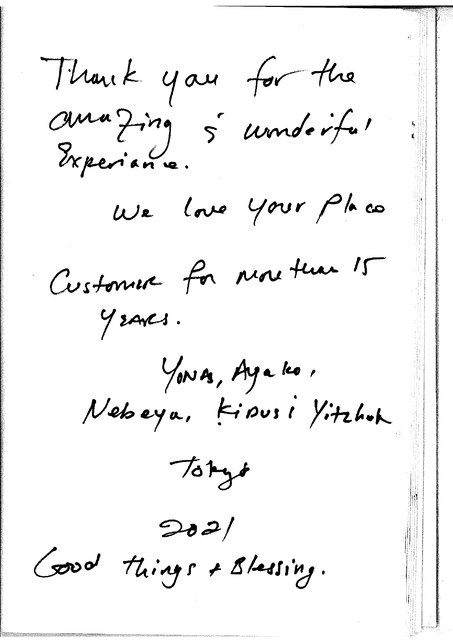 Thank you for the
amazing & wonderful
Experiance.
We love your place
Customer for more than 15
YEARS.
YONAS, Ayako,
Nebeya, Kidusi Yitzhak
Tokyo
2021
Good things + Blessing.